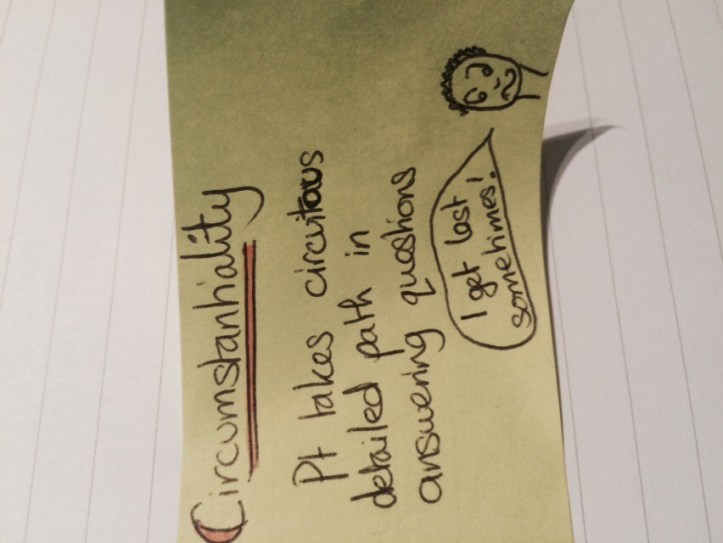 Circumstantiality
Pt takes circuitous
detailed path in
answering questions
I get lost
sometimes!